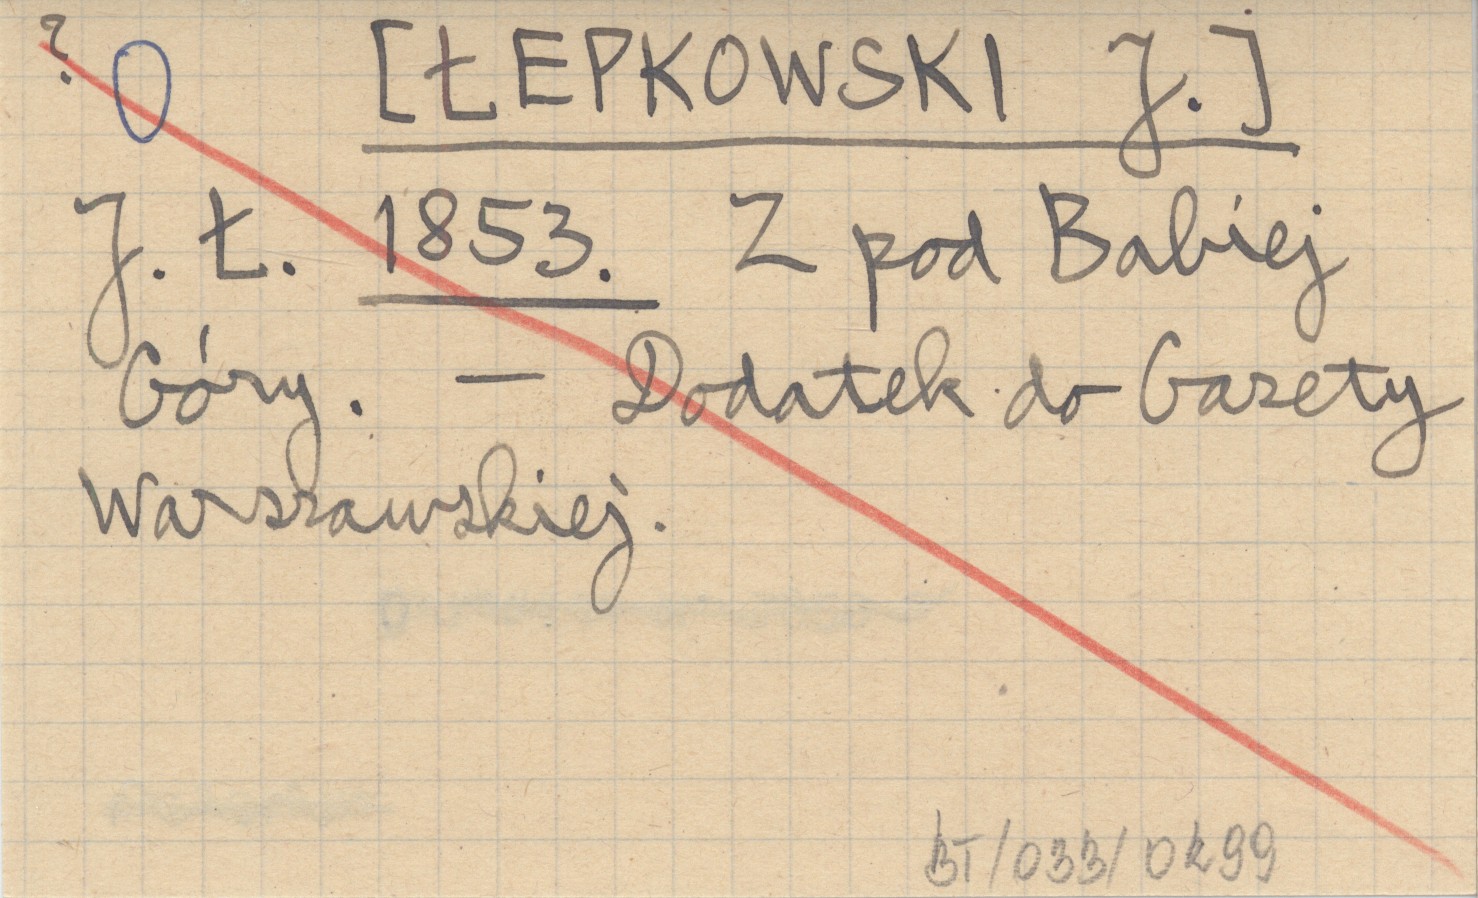 ?
[ŁEPKOWSKI J.]
J. Ł. 1853. Z pod Babiej
Góry. — Dodatek do Gazety
Warszawskiej.
BT/033/0299